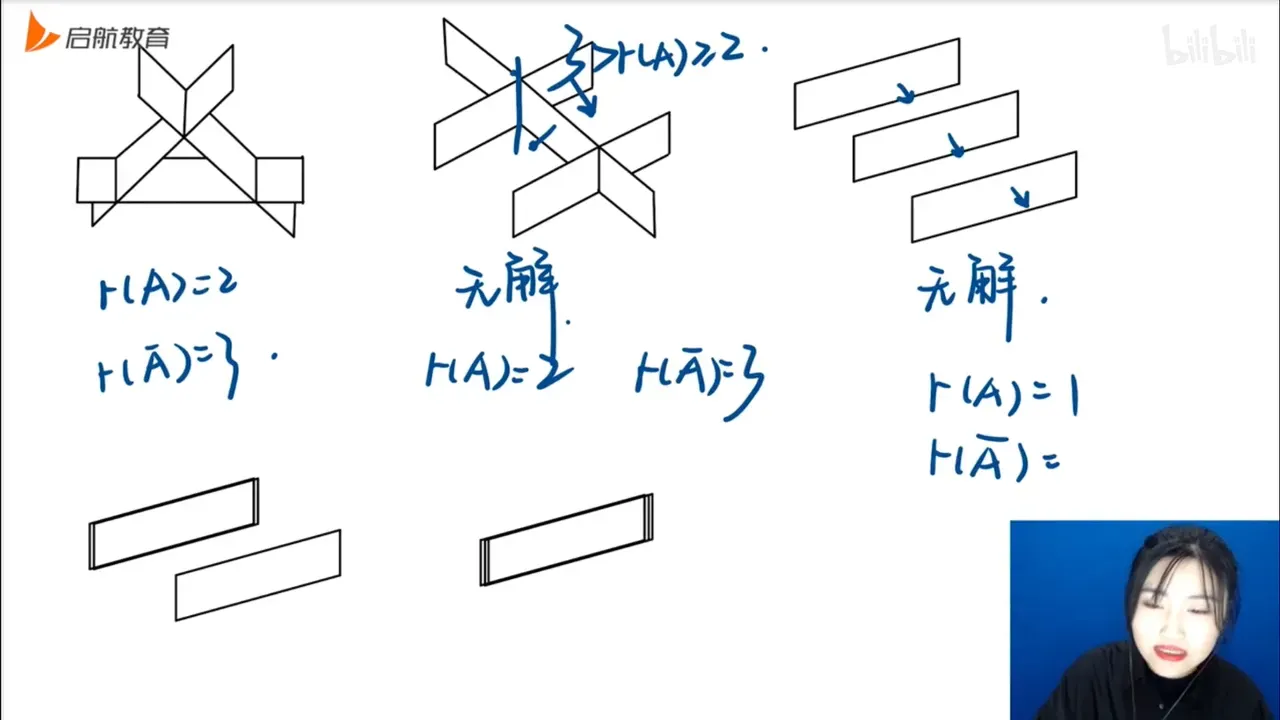 启航教育
bilibili
3>r(A)≥2.
r(A)=2
r(Ā)=3.
无解.
r(A)=2 r(Ā)=3
无解.
r(A)=1
r(Ā)=